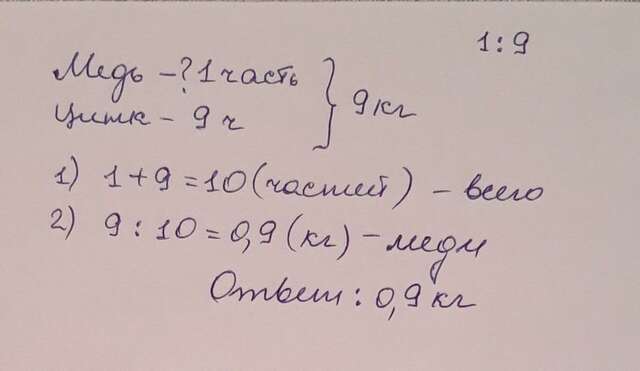 1:9
Медь – ? 1 часть
Цинк – 9 ч } 9 кг
1) 1 + 9 = 10 (частей) – всего
2) 9 : 10 = 0,9 (кг) – меди
Ответ: 0,9 кг